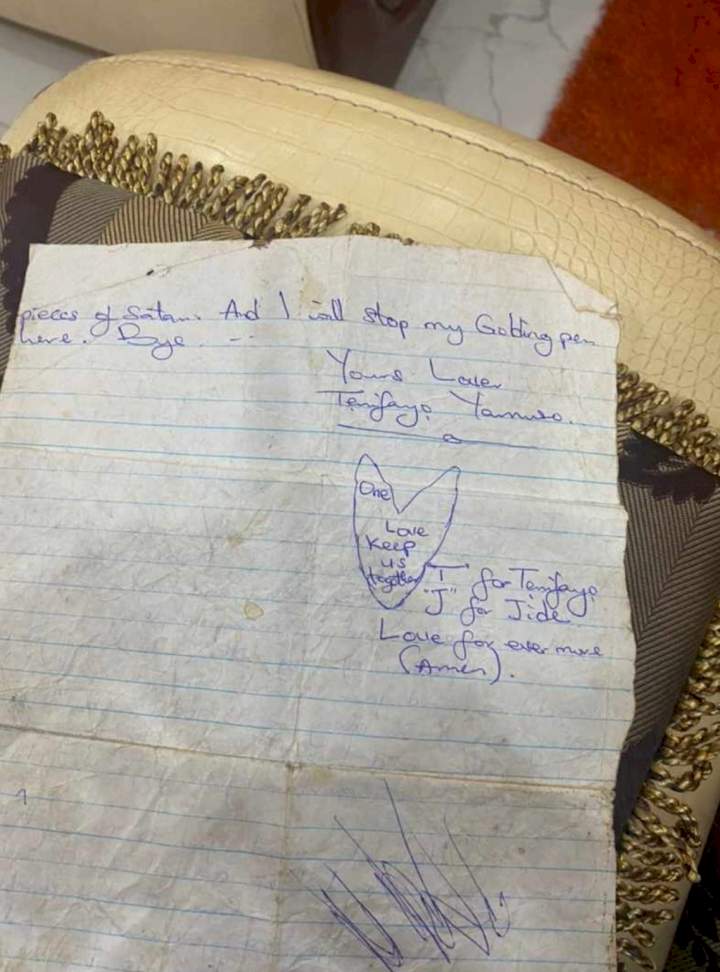 pieces of Satan. And I will stop my Golding pen
here. Bye ---
Yours Lover
Temifayo
One
Love
Keep
us
together
"T" for Temifayo
"J" for Jide
Love for ever more
(Amen).